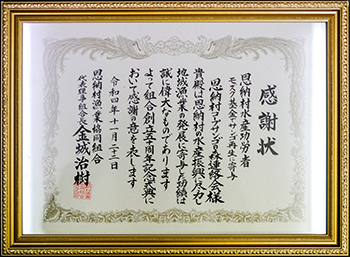 感謝状
恩納村水産功労者
モズク基金でサンゴ再生に寄与
恩納村コープサンゴの森連絡会様
貴殿は恩納村の水産振興に尽力し
地域漁業の発展に寄与した功績は
誠に偉大なものであります
よって組合創立五十周年記念式典に
おいて感謝の意を表します
令和四年十一月二十三日
恩納村漁業協同組合
代表理事組合長 金城治樹